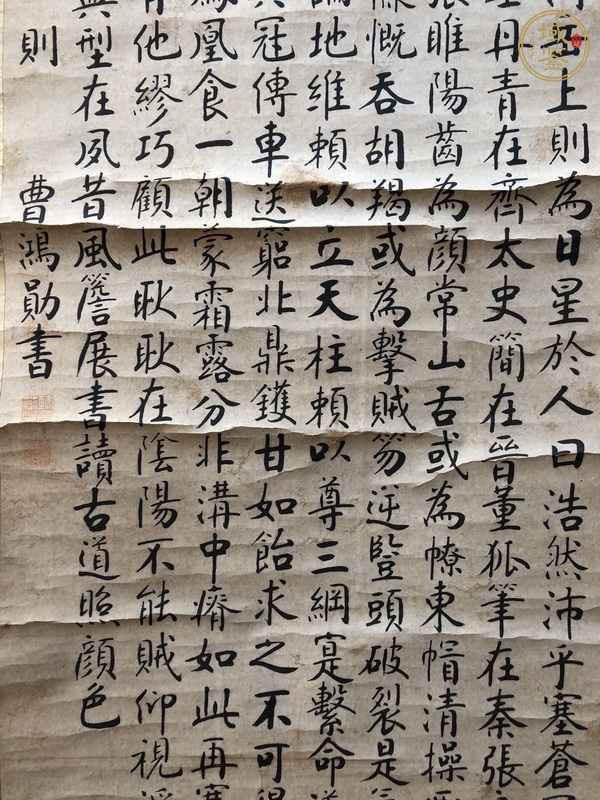 岳上則為日星於人曰浩然沛乎塞蒼
丹青在齊太史簡在晉董狐筆在秦張
張睢陽齒為顏常山舌或為東帽清操
慨吞胡羯或為擊賊笏逆豎頭破裂是氣
論地維賴以立天柱賴以尊三綱寔繫命
冠傳車送窮北鼎鑊甘如飴求之不可得
鳳凰食一朝蒙霜露分非溝中瘠如此再寒
有他繆巧顧此耿耿在陰陽不能賊仰視浮
典型在夙昔風簷展書讀古道照顏色
則 曹鴻勛書